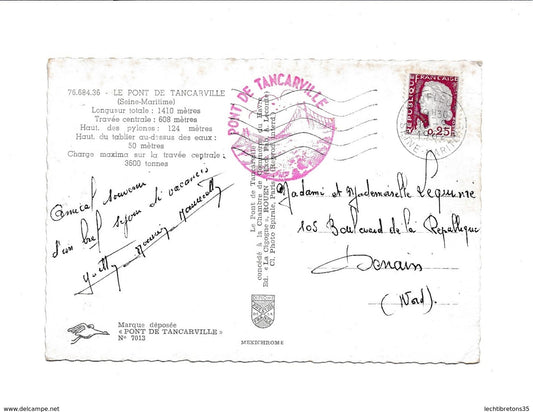 76.684.36 - LE PONT DE TANCARVILLE
(Seine-Maritime)
Longueur totale : 1410 mètres
Travée centrale : 608 mètres
Haut. des pylones : 124 mètres
Haut. du tablier au-dessus des eaux :
50 mètres
Charge maxima sur la travée centrale :
3600 tonnes
Amical souvenir
d'un bref séjour
Marque déposée
« PONT DE TANCARVILLE »
N° 7013
PONT DE TANCARVILLE
Le Pont de Tancarville
concédé à la Chambre de Commerce du Havre
Ed. « La Cigogne », ROUEN
Cl. Photo Spirale, Paris
MEXICHROME
REPUBLIQUE
FRANÇAISE
0,25
Madame et Mademoiselle
105 Boulevard de la République
Denain
(Nord)
lechtibretons35